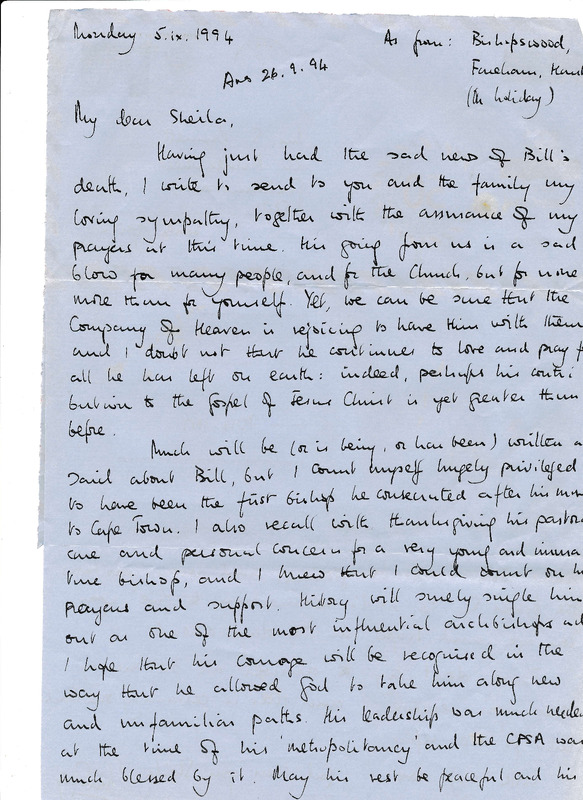 Monday 5.ix.1994
As from: Bishopswood,
Fareham, Hant
(On holiday)
Ans 26.9.94
My dear Sheila,
Having just had the sad news of Bill's
death, I write to send to you and the family my
loving sympathy, together with the assurance of my
prayers at this time. His going from us is a sad
blow for many people, and for the Church, but for none
more than for yourself. Yet, we can be sure that the
Company of Heaven is rejoicing to have him with them
and I doubt not that he continues to love and pray f
all he has left on earth: indeed, perhaps his contri
bution to the Gospel of Jesus Christ is yet greater than
before.
Much will be (or is being, or has been) written a
said about Bill, but I count myself hugely privileged
to have been the first bishop he consecrated after his mov
to Cape Town. I also recall with thanksgiving his pastora
care and personal concern for a very young and imma
ture bishop, and I knew that I could count on h
prayers and support. History will surely single him
out as one of the most influential archbishops and
I hope that his courage will be recognised in the
way that he allowed God to take him along new
and unfamiliar paths. His leadership was much neede
at the time of his 'metropolitancy' and the CPSA was
much blessed by it. May his rest be peaceful and his